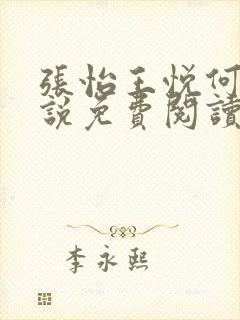 張怡王悦何
説免費閱讀
李永熙